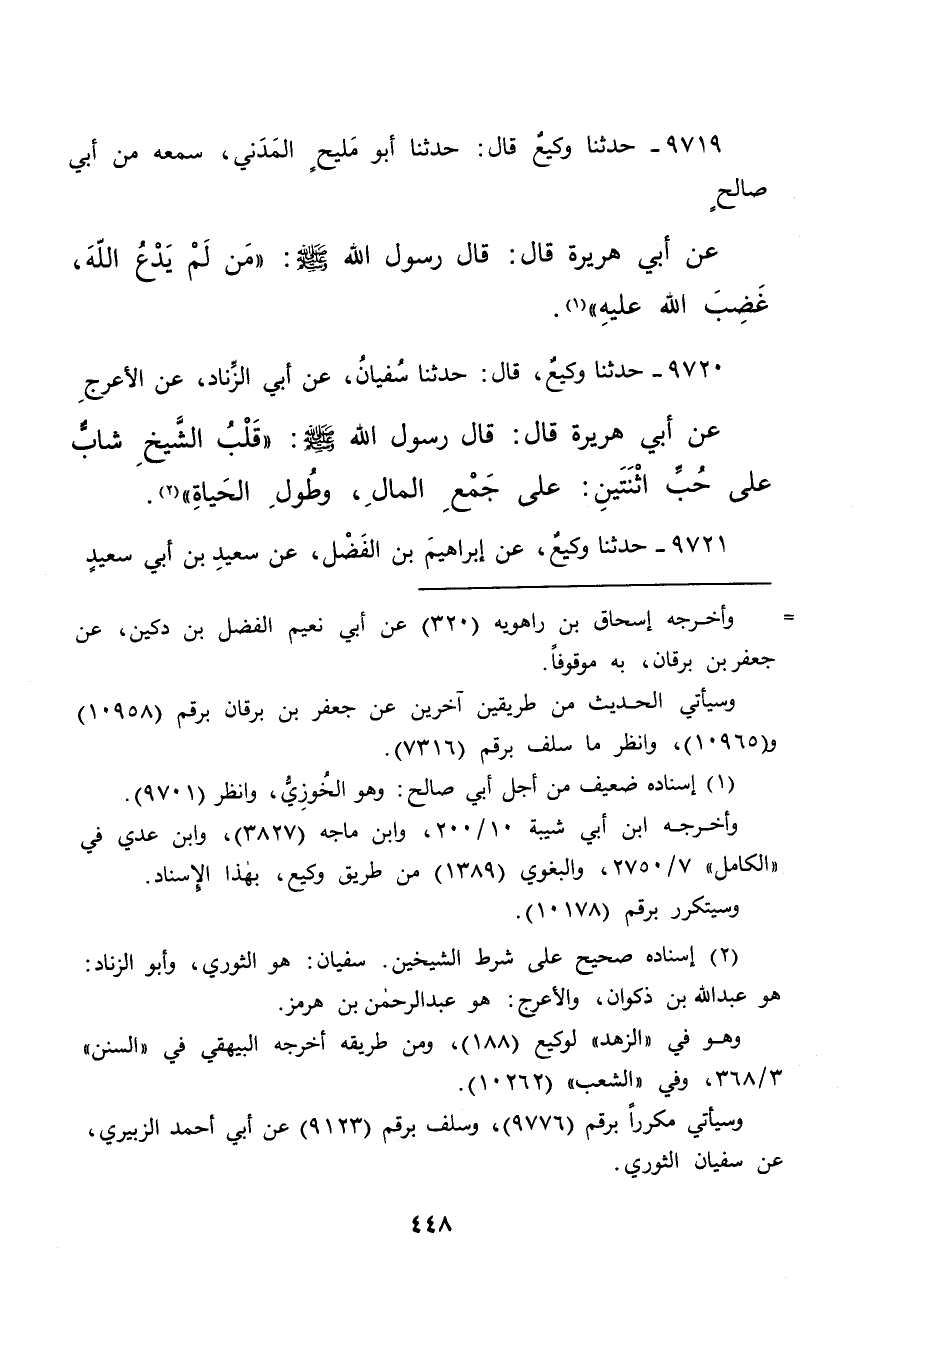 ٩٧١٩ـ حدثنا وكيعٌ قال: حدثنا أبو مَليحٍ المَدَني، سمعه من أبي
صالحٍ
عن أبي هريرة قال: قال رسول الله ﷺ: «مَن لَمْ يَدْعُ اللّهَ،
غَضِبَ الله عليهِ»(١).
٩٧٢٠ـ حدثنا وكيعٌ، قال: حدثنا سُفيانُ، عن أبي الزِّناد، عن الأعرجِ
عن أبي هريرة قال: قال رسول الله ﷺ: «قَلْبُ الشَّيخِ شابٌّ
على حُبِّ اثْنَتَينِ: على جَمْعِ المالِ، وطُولِ الحَياةِ»(٢).
٩٧٢١ـ حدثنا وكيعٌ، عن إبراهيمَ بن الفَضْل، عن سعيدِ بن أبي سعيدٍ
= وأخرجه إسحاق بن راهويه (٣٢٠) عن أبي نعيم الفضل بن دكين، عن
جعفر بن برقان، به موقوفاً.
وسيأتي الحديث من طريقين آخرين عن جعفر بن برقان برقم (١٠٩٥٨)
و(١٠٩٦٥)، وانظر ما سلف برقم (٧٣١٦).
(١) إسناده ضعيف من أجل أبي صالح: وهو الخُوزِيُّ، وانظر (٩٧٠١).
وأخرجه ابن أبي شيبة ٢٠٠/١٠، وابن ماجه (٣٨٢٧)، وابن عدي في
«الكامل» ٢٧٥٠/٧، والبغوي (١٣٨٩) من طريق وكيع، بهٰذا الإسناد.
وسيتكرر برقم (١٠١٧٨).
(٢) إسناده صحيح على شرط الشيخين. سفيان: هو الثوري، وأبو الزناد:
هو عبدالله بن ذكوان، والأعرج: هو عبدالرحمٰن بن هرمز.
وهو في «الزهد» لوكيع (١٨٨)، ومن طريقه أخرجه البيهقي في «السنن»
٣٦٨/٣، وفي «الشعب» (١٠٢٦٢).
وسيأتي مكرراً برقم (٩٧٧٦)، وسلف برقم (٩١٢٣) عن أبي أحمد الزبيري،
عن سفيان الثوري.
٤٤٨